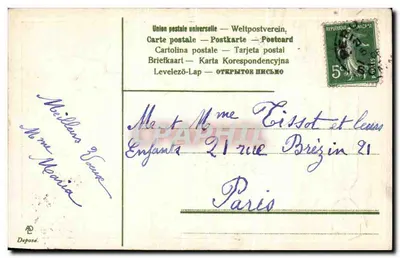 Union postale universelle – Weltpostverein,
Carte postale – Postkarte – Postcard
Cartolina postale – Tarjeta postal
Briefkaart – Karta Korespondencyjna
Levelező-Lap – ОТКРЫТОЕ ПИСЬМО
5c
Meilleurs Vœux
Mme
Mr et Mme Tissot et leurs
Enfants 21 rue Brézin 21
Paris
Deposé